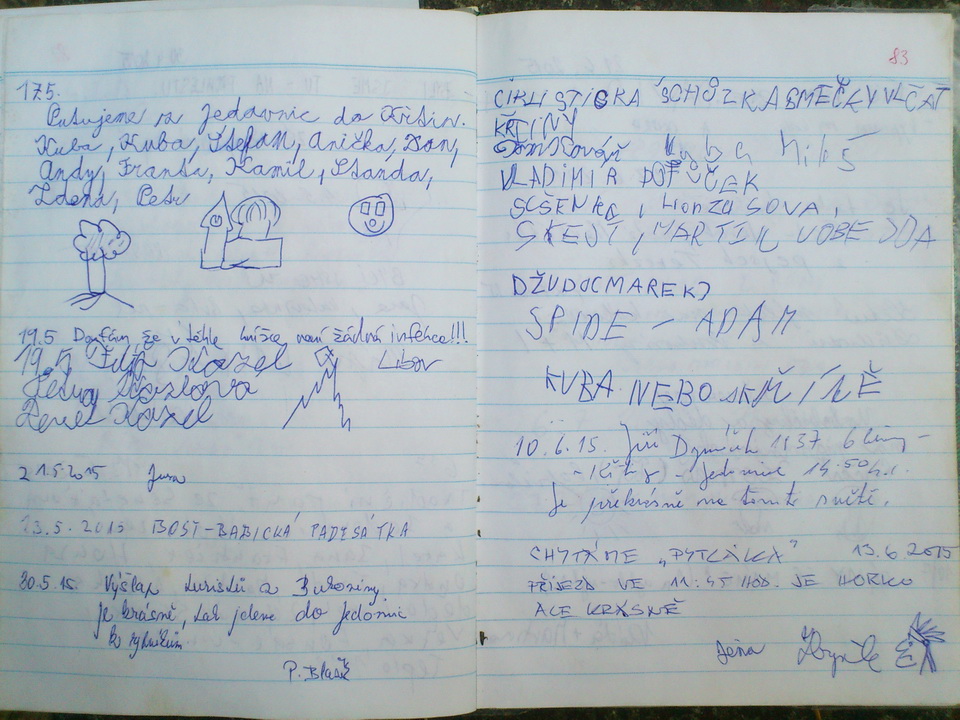 17.5.
Putujeme z Jedovnic do Křtin.
Kuba, Kuba, Štefan, Anička, Dan,
Andy, Franta, Kamil, Standa,
Zdena, Petr
19.5 Doufám že v téhle knížce není žádná infekce!!!
19.5. Filip Kozel Libor
Kozlova
Pavel Kozel
21.5.2015 Jura
23.5.2015 BOŠT-BABICKÁ PADESÁTKA
30.5.15. Výšlap turistů z Bukoviny
je krásně, tak jdeme do Jedovnic
ke rybníkům
P. Blažk
83
CIKLISTICKA SCHŮZKA SMEČKY VLČAT
KŘTINY
Tom Kovář Kuba Miliš
VLADIMIR
, Honza SOVA,
, MARTIN
DŽUDOCMAREK)
SPIDE - ADAM
KUBA NEBO SKŘÍNĚ
10.6.15. Jiří 1137
- Křtiny - Jedovnice 14:50h.
Je překrásně na tomto světě.
CHYTÁME „PYTLÁKA" 13.6.2015
PŘÍJEZD VE 11:45 HOD. JE HORKO
ALE KRÁSNĚ
Jéňa Zbyněk